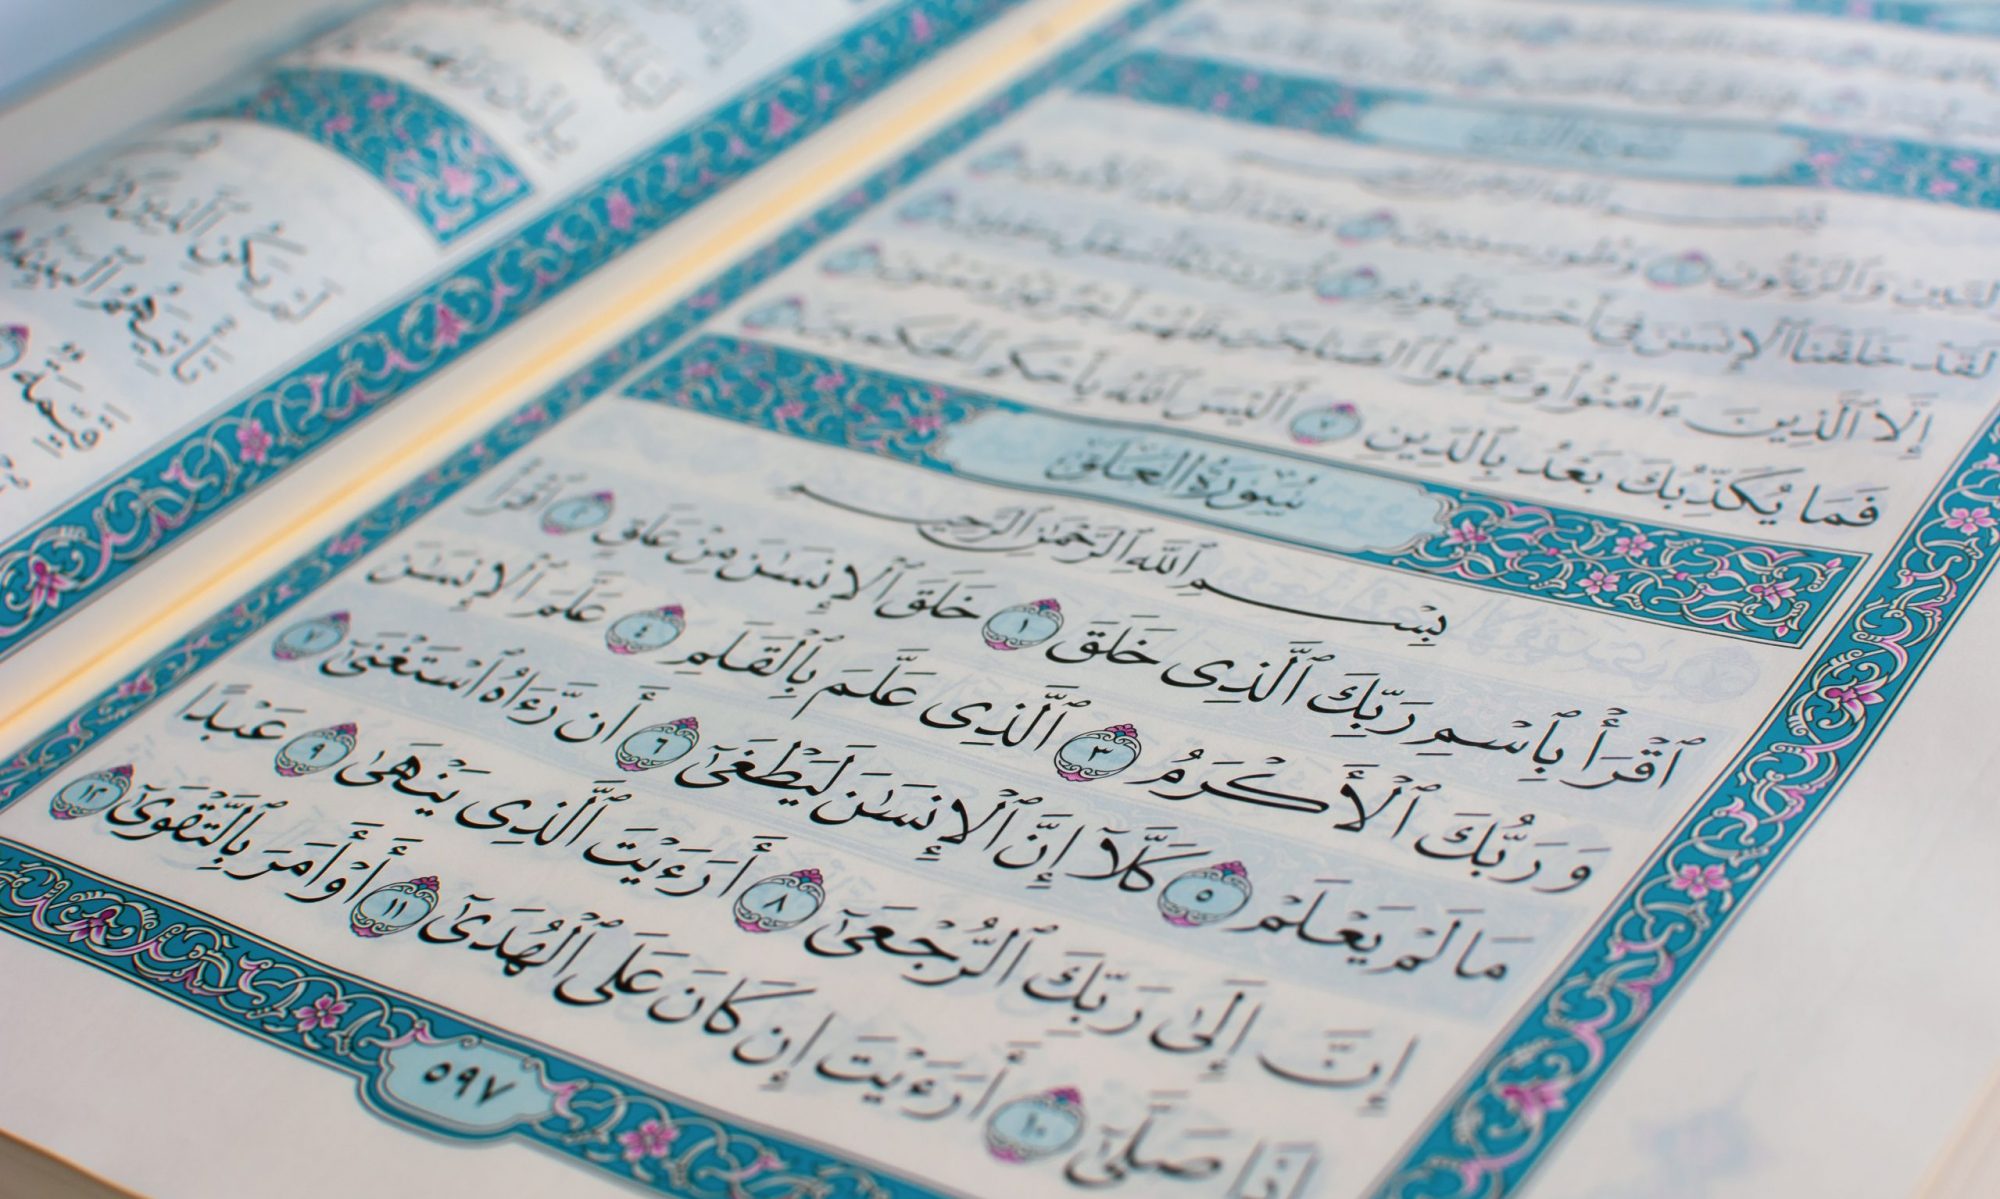 وَٱلزَّيْتُونِ ١ وَطُورِ سِينِينَ ٢ وَهَٰذَا ٱلْبَلَدِ ٱلْأَمِينِ ٣
لَقَدْ خَلَقْنَا ٱلْإِنسَٰنَ فِىٓ أَحْسَنِ تَقْوِيمٍ ٤ ثُمَّ رَدَدْنَٰهُ أَسْفَلَ سَٰفِلِينَ ٥
إِلَّا ٱلَّذِينَ ءَامَنُوا۟ وَعَمِلُوا۟ ٱلصَّٰلِحَٰتِ فَلَهُمْ أَجْرٌ غَيْرُ مَمْنُونٍ ٦
فَمَا يُكَذِّبُكَ بَعْدُ بِٱلدِّينِ ٧ أَلَيْسَ ٱللَّهُ بِأَحْكَمِ ٱلْحَٰكِمِينَ ٨
سُورَةُ العَلَقِ
بِسْمِ ٱللَّهِ ٱلرَّحْمَٰنِ ٱلرَّحِيمِ
ٱقْرَأْ بِٱسْمِ رَبِّكَ ٱلَّذِى خَلَقَ ١ خَلَقَ ٱلْإِنسَٰنَ مِنْ عَلَقٍ ٢ ٱقْرَأْ
وَرَبُّكَ ٱلْأَكْرَمُ ٣ ٱلَّذِى عَلَّمَ بِٱلْقَلَمِ ٤ عَلَّمَ ٱلْإِنسَٰنَ
مَا لَمْ يَعْلَمْ ٥ كَلَّآ إِنَّ ٱلْإِنسَٰنَ لَيَطْغَىٰٓ ٦ أَن رَّءَاهُ ٱسْتَغْنَىٰٓ ٧
إِنَّ إِلَىٰ رَبِّكَ ٱلرُّجْعَىٰٓ ٨ أَرَءَيْتَ ٱلَّذِى يَنْهَىٰ ٩ عَبْدًا
إِذَا صَلَّىٰٓ ١٠ أَرَءَيْتَ إِن كَانَ عَلَى ٱلْهُدَىٰٓ ١١ أَوْ أَمَرَ بِٱلتَّقْوَىٰٓ ١٢
٥٩٧
لَمْ يَكُنِ ٱلَّذِينَ كَفَرُوا۟
تَأْتِيَهُمُ ٱلْبَيِّنَةُ